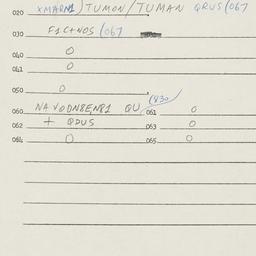 020 XMARN1) TUMON/TUMAN QRUS(067
030 F1C+NOS (067
040 0
041 0
050 0
060 NAVODN8EN81 QU (830 061 0
062 + QDUS 063 0
064 0 065 0